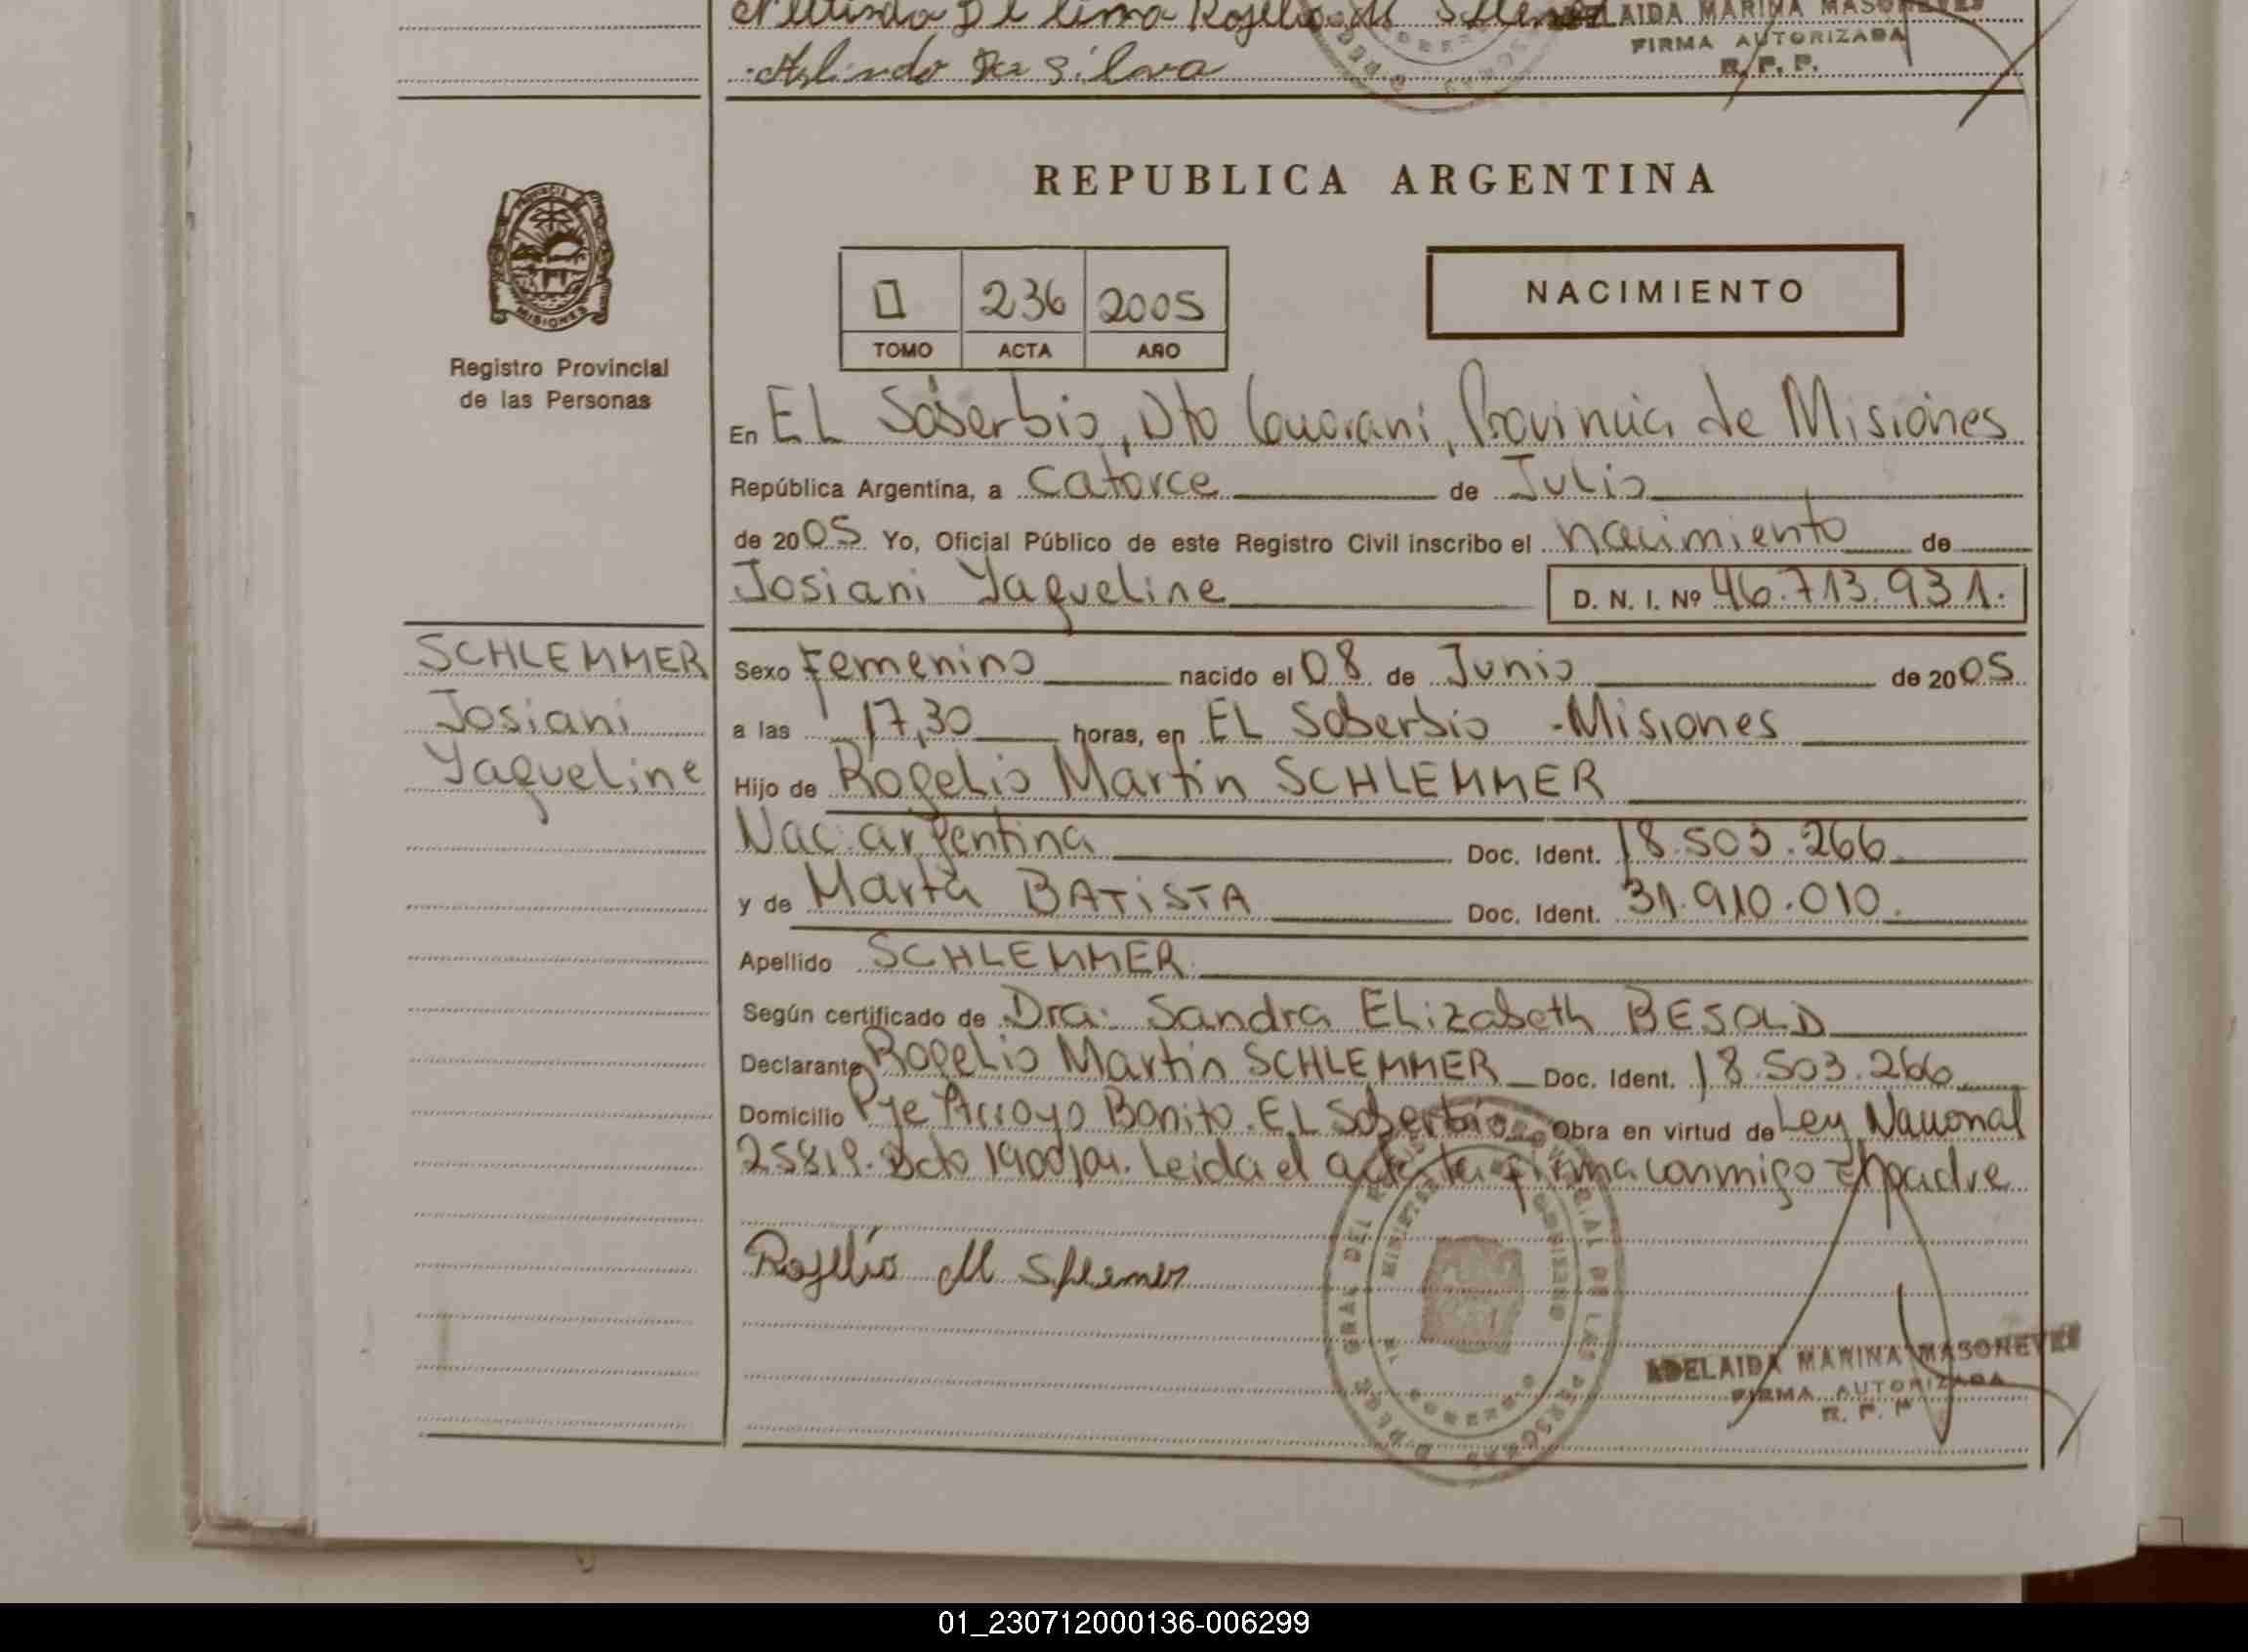 De lima Rogelio M
ADELAIDA MARINA MASONEVES
FIRMA AUTORIZADA
R. P. P.
Arlindo Da silva
REPUBLICA ARGENTINA
PROVINCIA DE MISIONES
Registro Provincial
de las Personas
II 236 2005
TOMO ACTA AÑO
NACIMIENTO
En EL Soberbio, Dto Guarani, Provincia de Misiones
República Argentina, a catorce de Julio
de 2005 Yo, Oficial Público de este Registro Civil inscribo el nacimiento de
Josiani Yaqueline D. N. I. Nº 46.713.931.
SCHLEMMER
Josiani
Yaqueline
Sexo Femenino nacido el 08 de Junio de 2005
a las 17,30 horas, en EL Soberbio - Misiones
Hijo de Rogelio Martin SCHLEMMER
Nac. argentina Doc. Ident. 18.503.266
y de Marta BATISTA Doc. Ident. 31.910.010.
Apellido SCHLEMMER
Según certificado de Dra. Sandra Elizabeth BESOLD
Declarante Rogelio Martin SCHLEMMER Doc. Ident. 18.503.266
Domicilio Pje Arroyo Bonito. EL Soberbio Obra en virtud de Ley Nacional
25819. Dcto 1900/04. Leida el acta la firma conmigo El padre
Rogelio M
ADELAIDA MARINA MASONEVES
FIRMA AUTORIZADA
R. P. P.
01_230712000136-006299